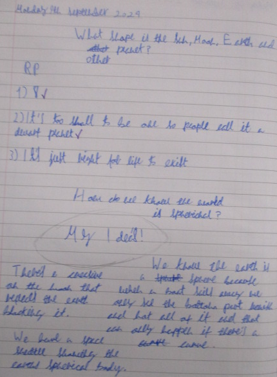 Monday 9th September 2029
What shape is the Sun, Moon, Earth and
other planet?
RP
1) 8✓
2) It's too small to be one so people call it a
dwarf planet✓
3) It's just right for life to exist
How do we know the world
is spherical?
My I deil!
There's a
on the moon that
reflects the earth
blocking it.
We have a space
blocking the
earths spherical body.
We know the earth is
a sphere because
when a boat sails away we
only see the bottom part
and not all of it and that
can only happen if there's a
curve.